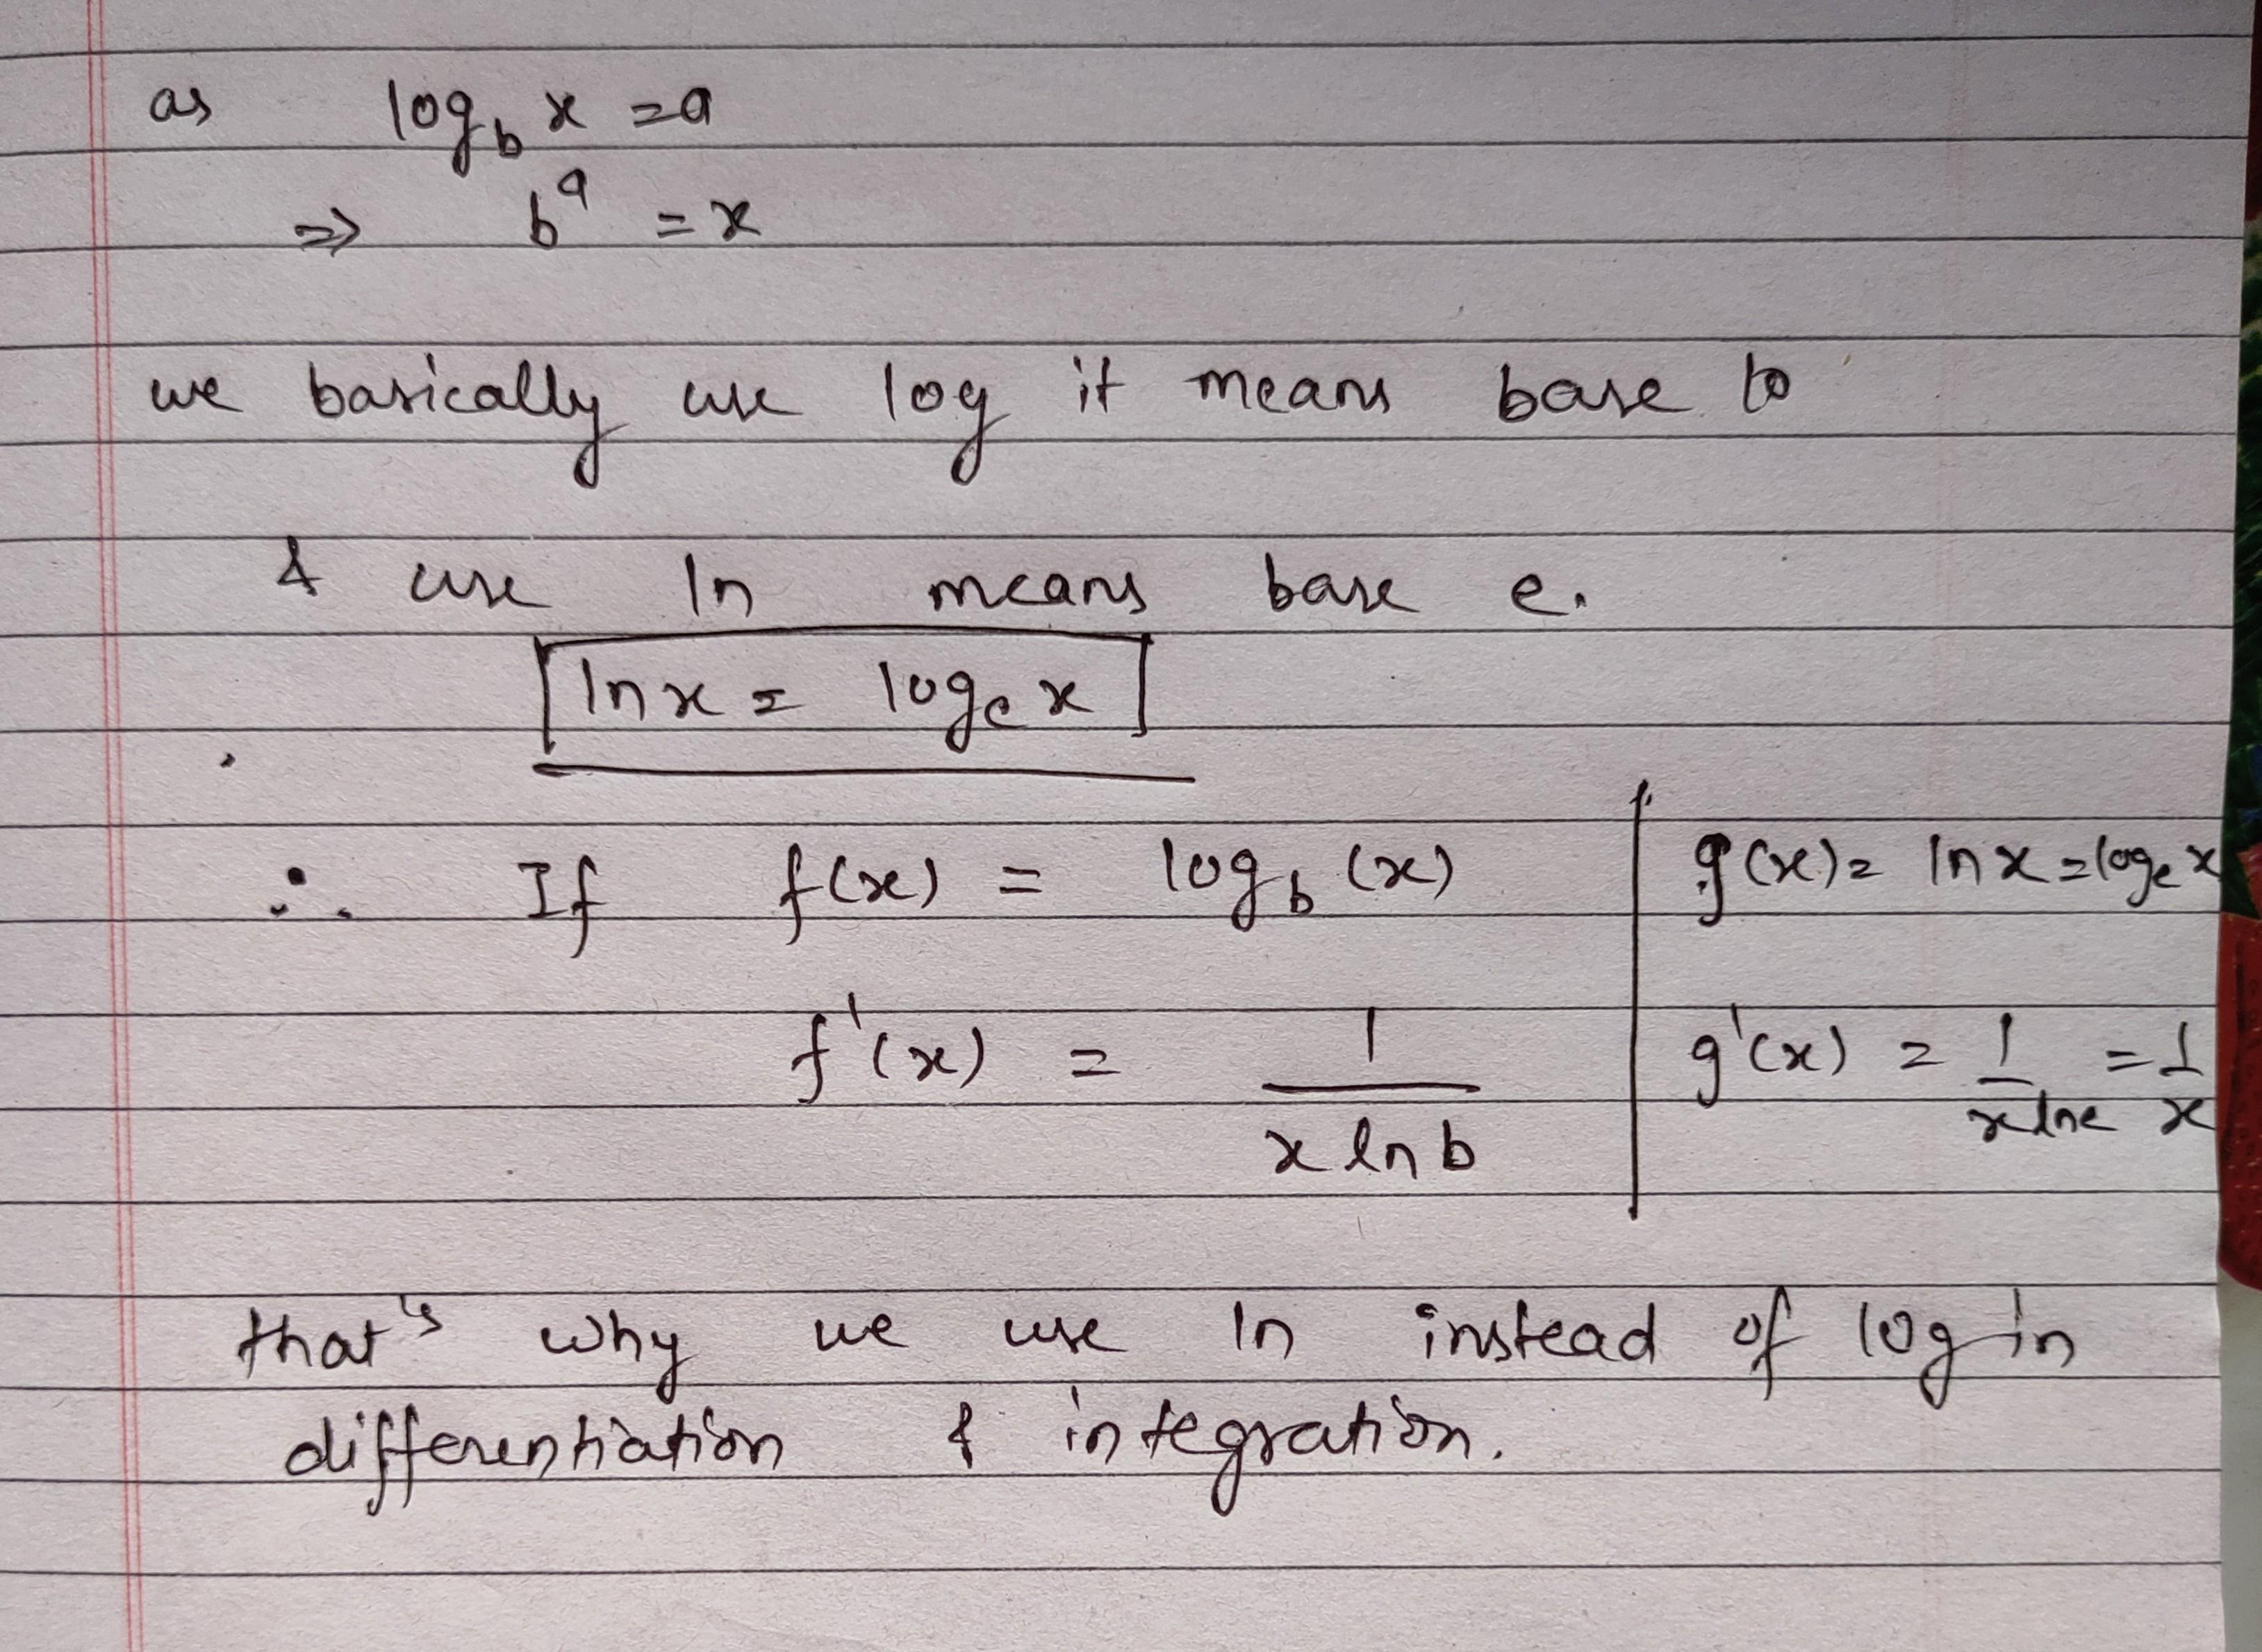 as log_b x = a
⇒ b^a = x
we basically use log it means base 10
& use ln means base e.
ln x = log_e x
∴ If f(x) = log_b (x) | g(x) = ln x = log_e x
f'(x) = 1/(x ln b) | g'(x) = 1/(x ln e) = 1/x
that's why we use ln instead of log in
differentiation & integration.